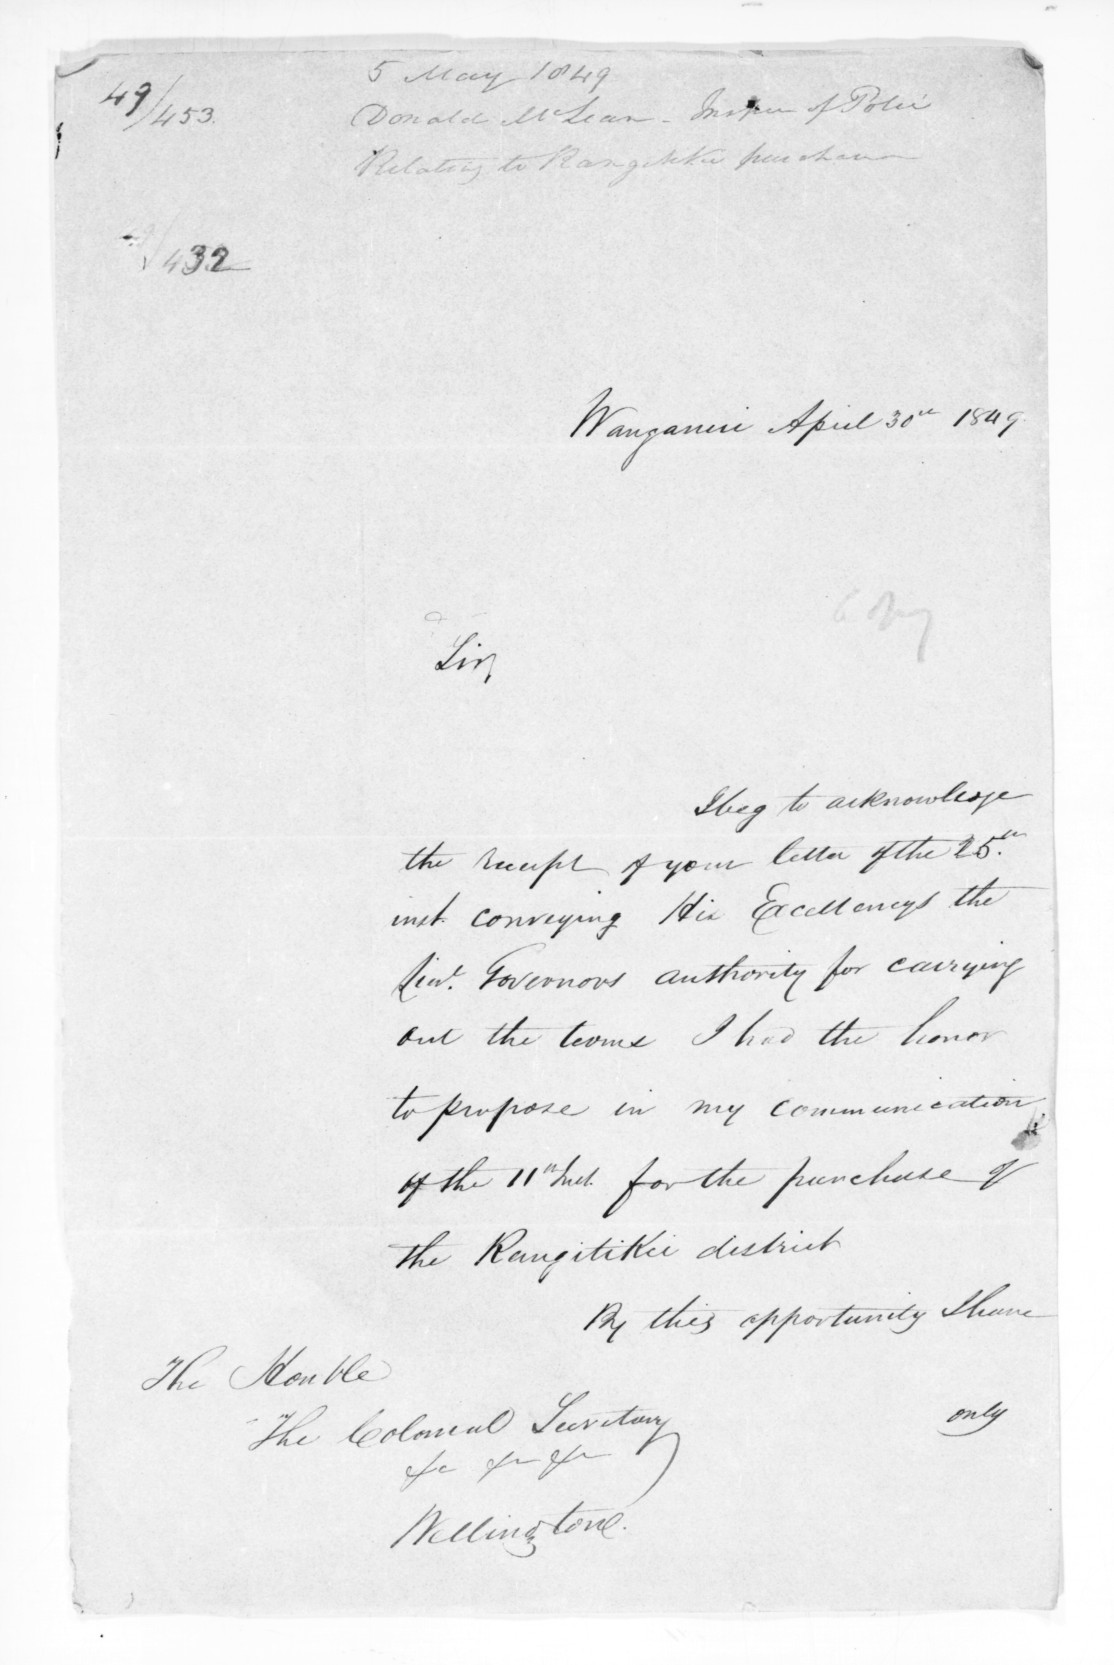 49/453.
5 May 1849
Donald McLean - Inspr of Police
Relating to Rangitikei purchase
432
Wanganui April 30th 1849.
Copy
Sir,
I beg to acknowledge
the receipt of your letter of the 25.th
inst. conveying His Excellencys the
Lieut. Governors authority for carrying
out the terms I had the honor
to propose in my communication
of the 11th Inst. for the purchase of
the Rangitikei district
By this opportunity I have
The Honble
The Colonial Secretary
&c &c &c
only
Wellington.